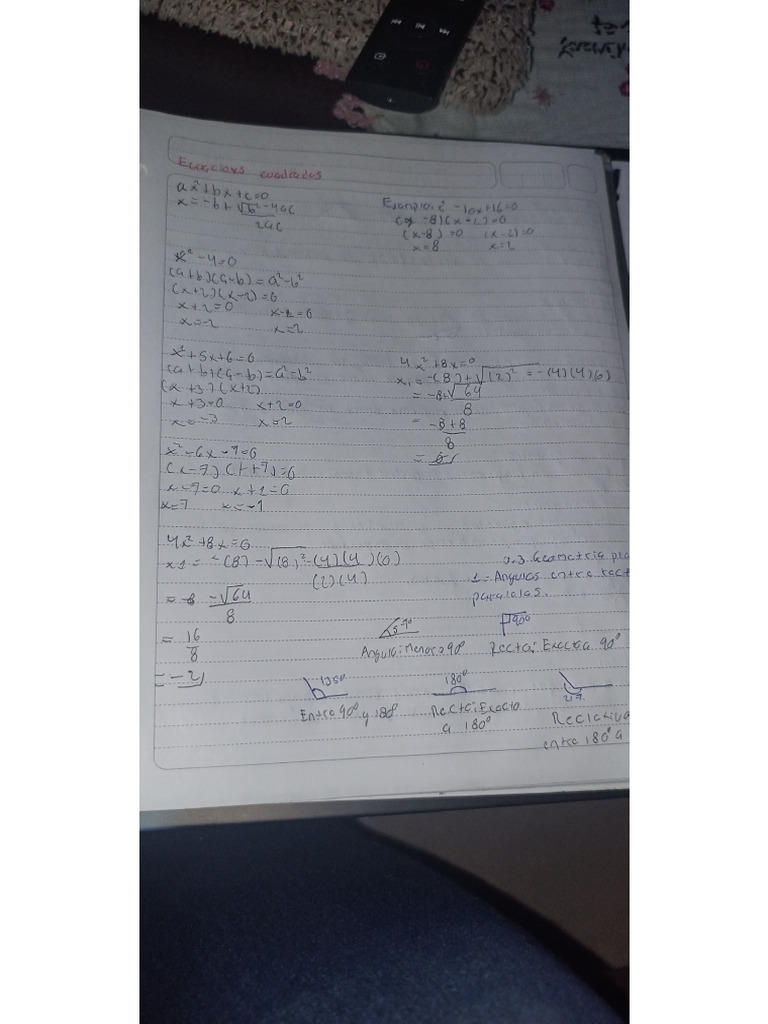 Ecuaciones cuadradas
ax²+bx+c=0
x=-b+√b²-4ac
2ac
Ejemplo: x² -10x+16=0
(x-8)(x-2)=0
(x-8)=0 (x-2)=0
x=8 x=2
x²-4=0
(a+b)(a-b)=a²-b²
(x+2)(x-2)=0
x+2=0 x-2=0
x=-2 x=2
x²+5x+6=0
(a+b)+(a-b)=a²=b²
(x+3)(x+2)
x+3=0 x+2=0
x=-3 x=2
x²-6x-7=0
(x-7)
x-7=0 x+1=0
x=7 x=-1
4x²+8x=0
x1=-(8)+√(2)²=-(4)(4)(0)
=-8+√64
8
=-8+8
8
=0
4x²+8x=0
x1= -(8)-√(8)²-(4)(4)(0)
(2)(4)
=-8 -√64
8
= 16
8
=-2
3.3. Geometria
1=Angulos entre rect
paralelas.
90°
Angulo: Menor a 90°
Recta: Exacta 90°
135°
Entre 90° y 180°
180°
Recta: Exacto
a 180°
entre 180° a